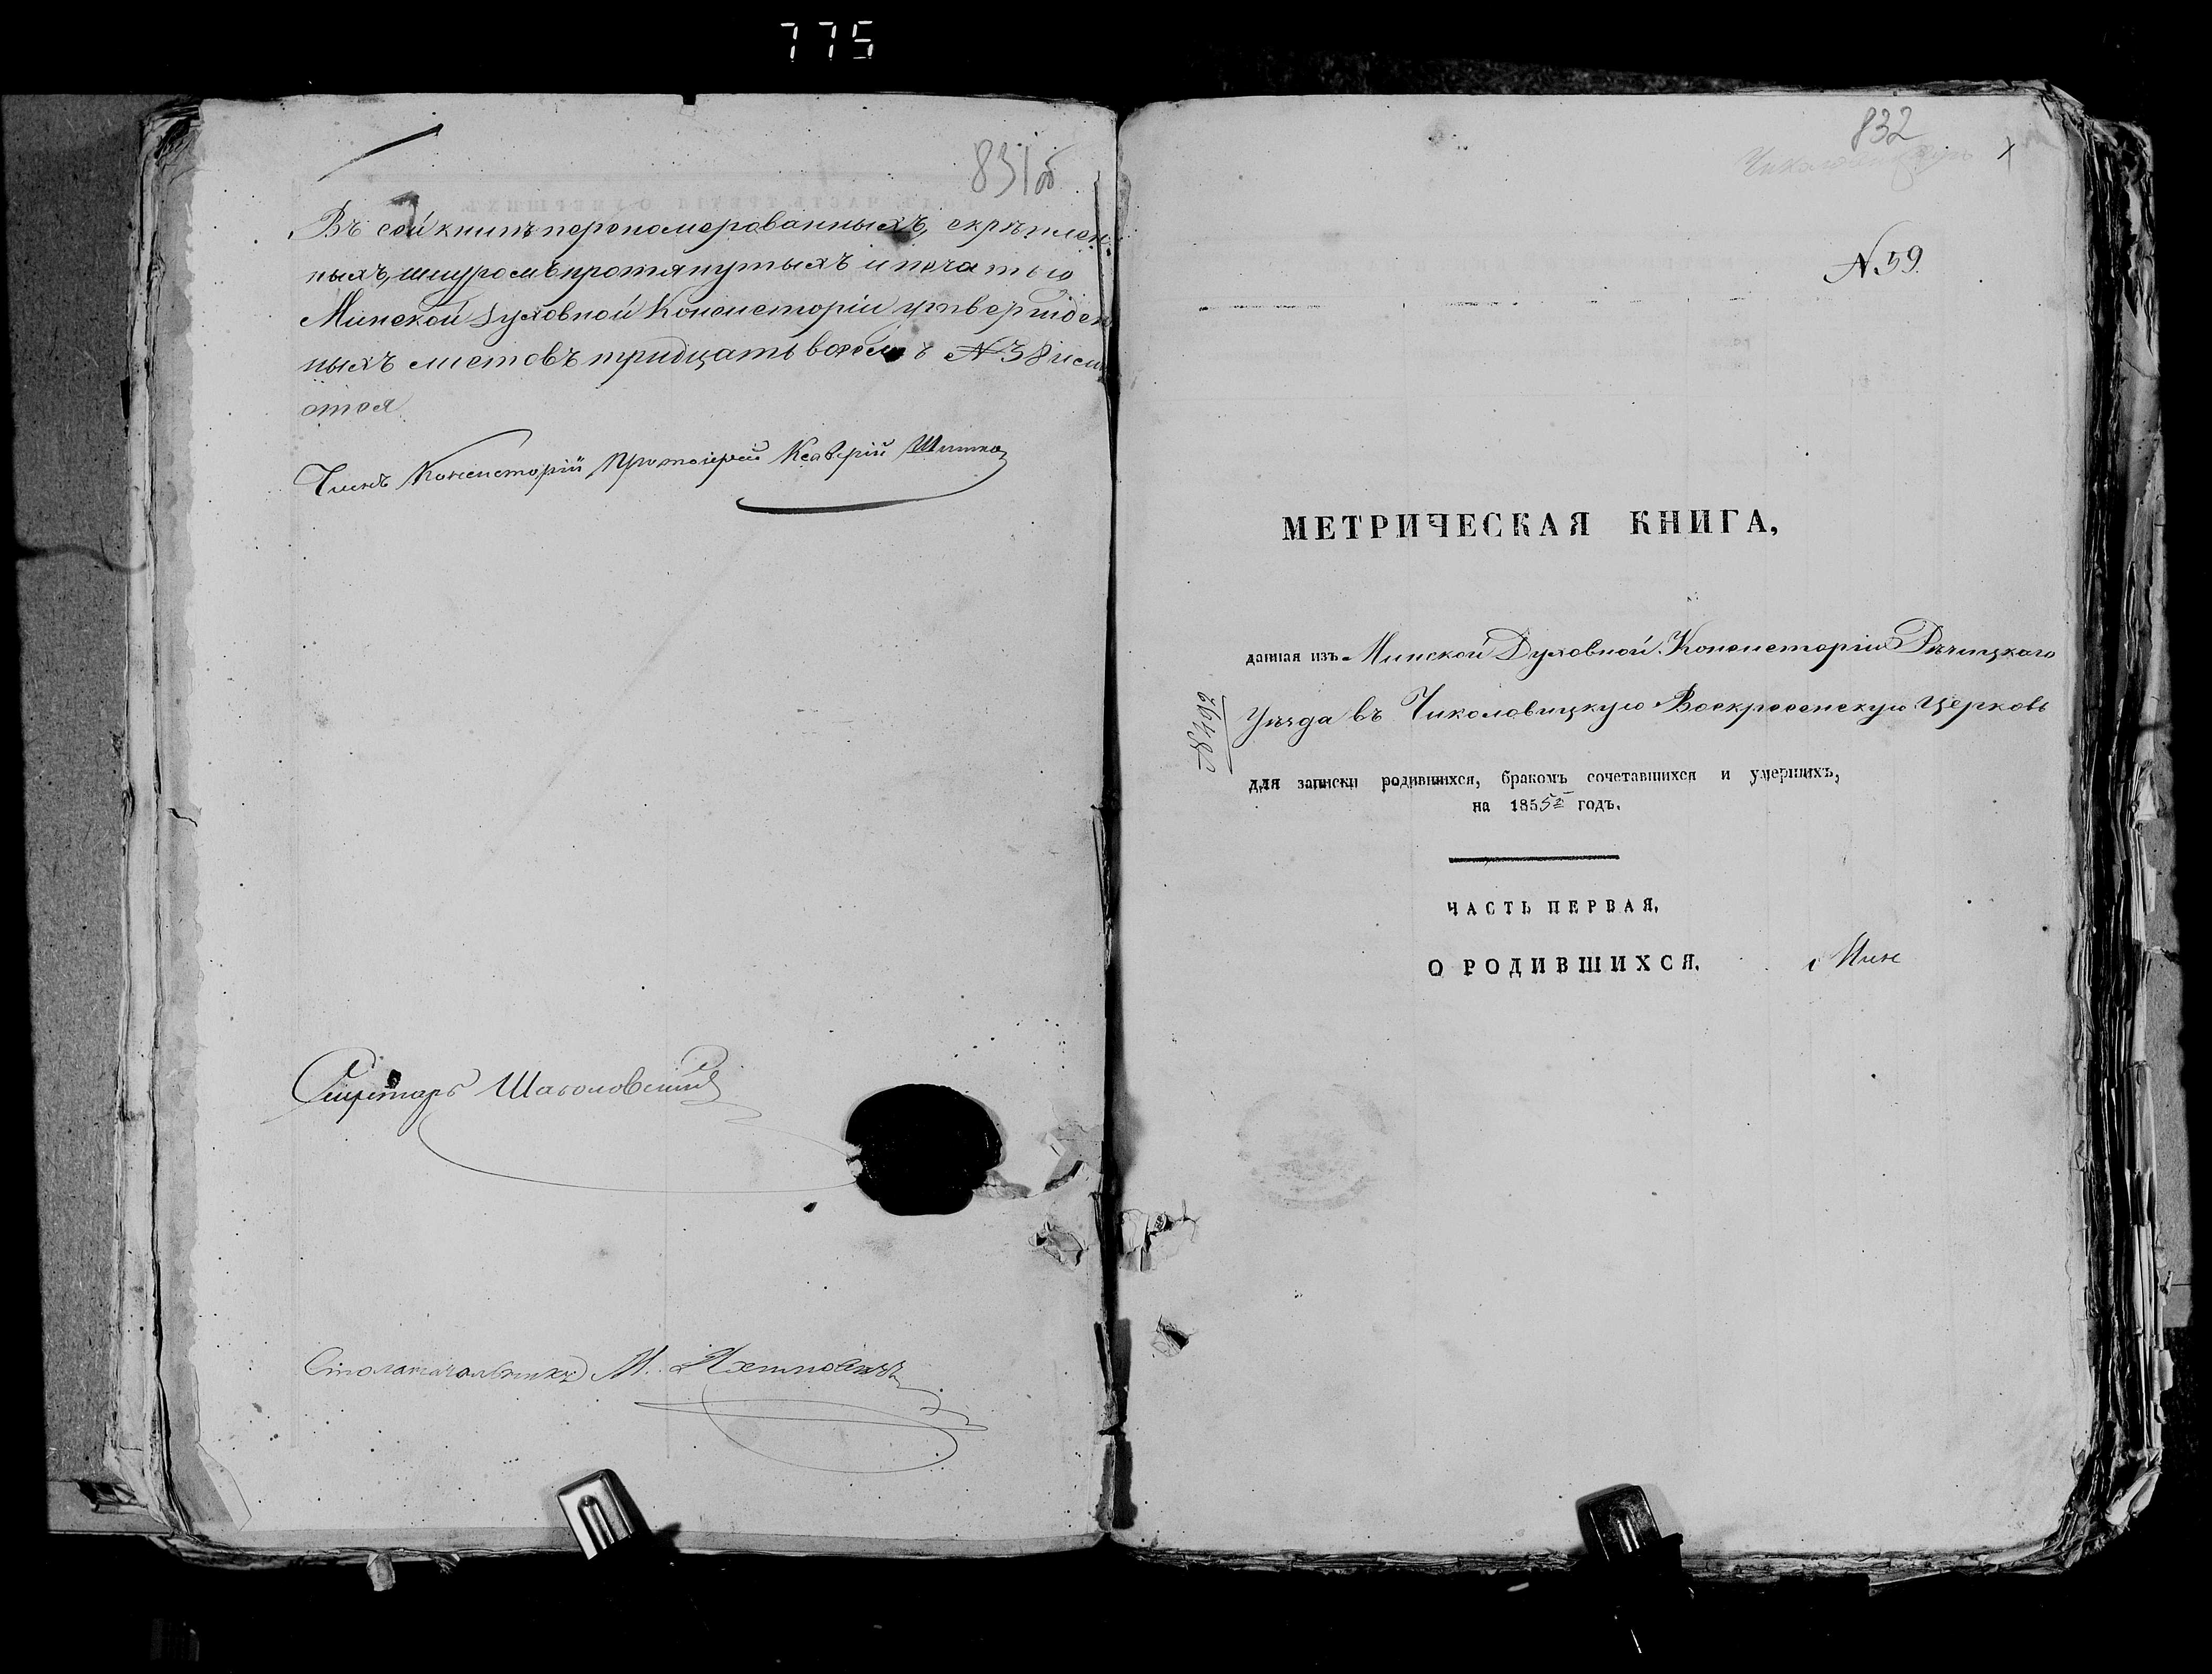 775
831об
Въ сей книгѣ перономерованныхъ, скрѣплен-
ныхъ, шнуромъ протянутыхъ и печатью
Минской Духовной Консисторіи утвержден
ныхъ листовъ тридцать восемь №38 име
ется
Членъ Консисторіи Протоіерей Ксаверій
Секретарь
Столоначальникъ М.
832
№59.
МЕТРИЧЕСКАЯ КНИГА,
данная изъ Минской Духовной Консисторіи Рѣчицкаго
Уѣзда въ Чиколовицкую Воскресенскую Церковь
для записки родившихся, бракомъ сочетавшихся и умершихъ,
на 1855й годъ.
ЧАСТЬ ПЕРВАЯ,
О РОДИВШИХСЯ.